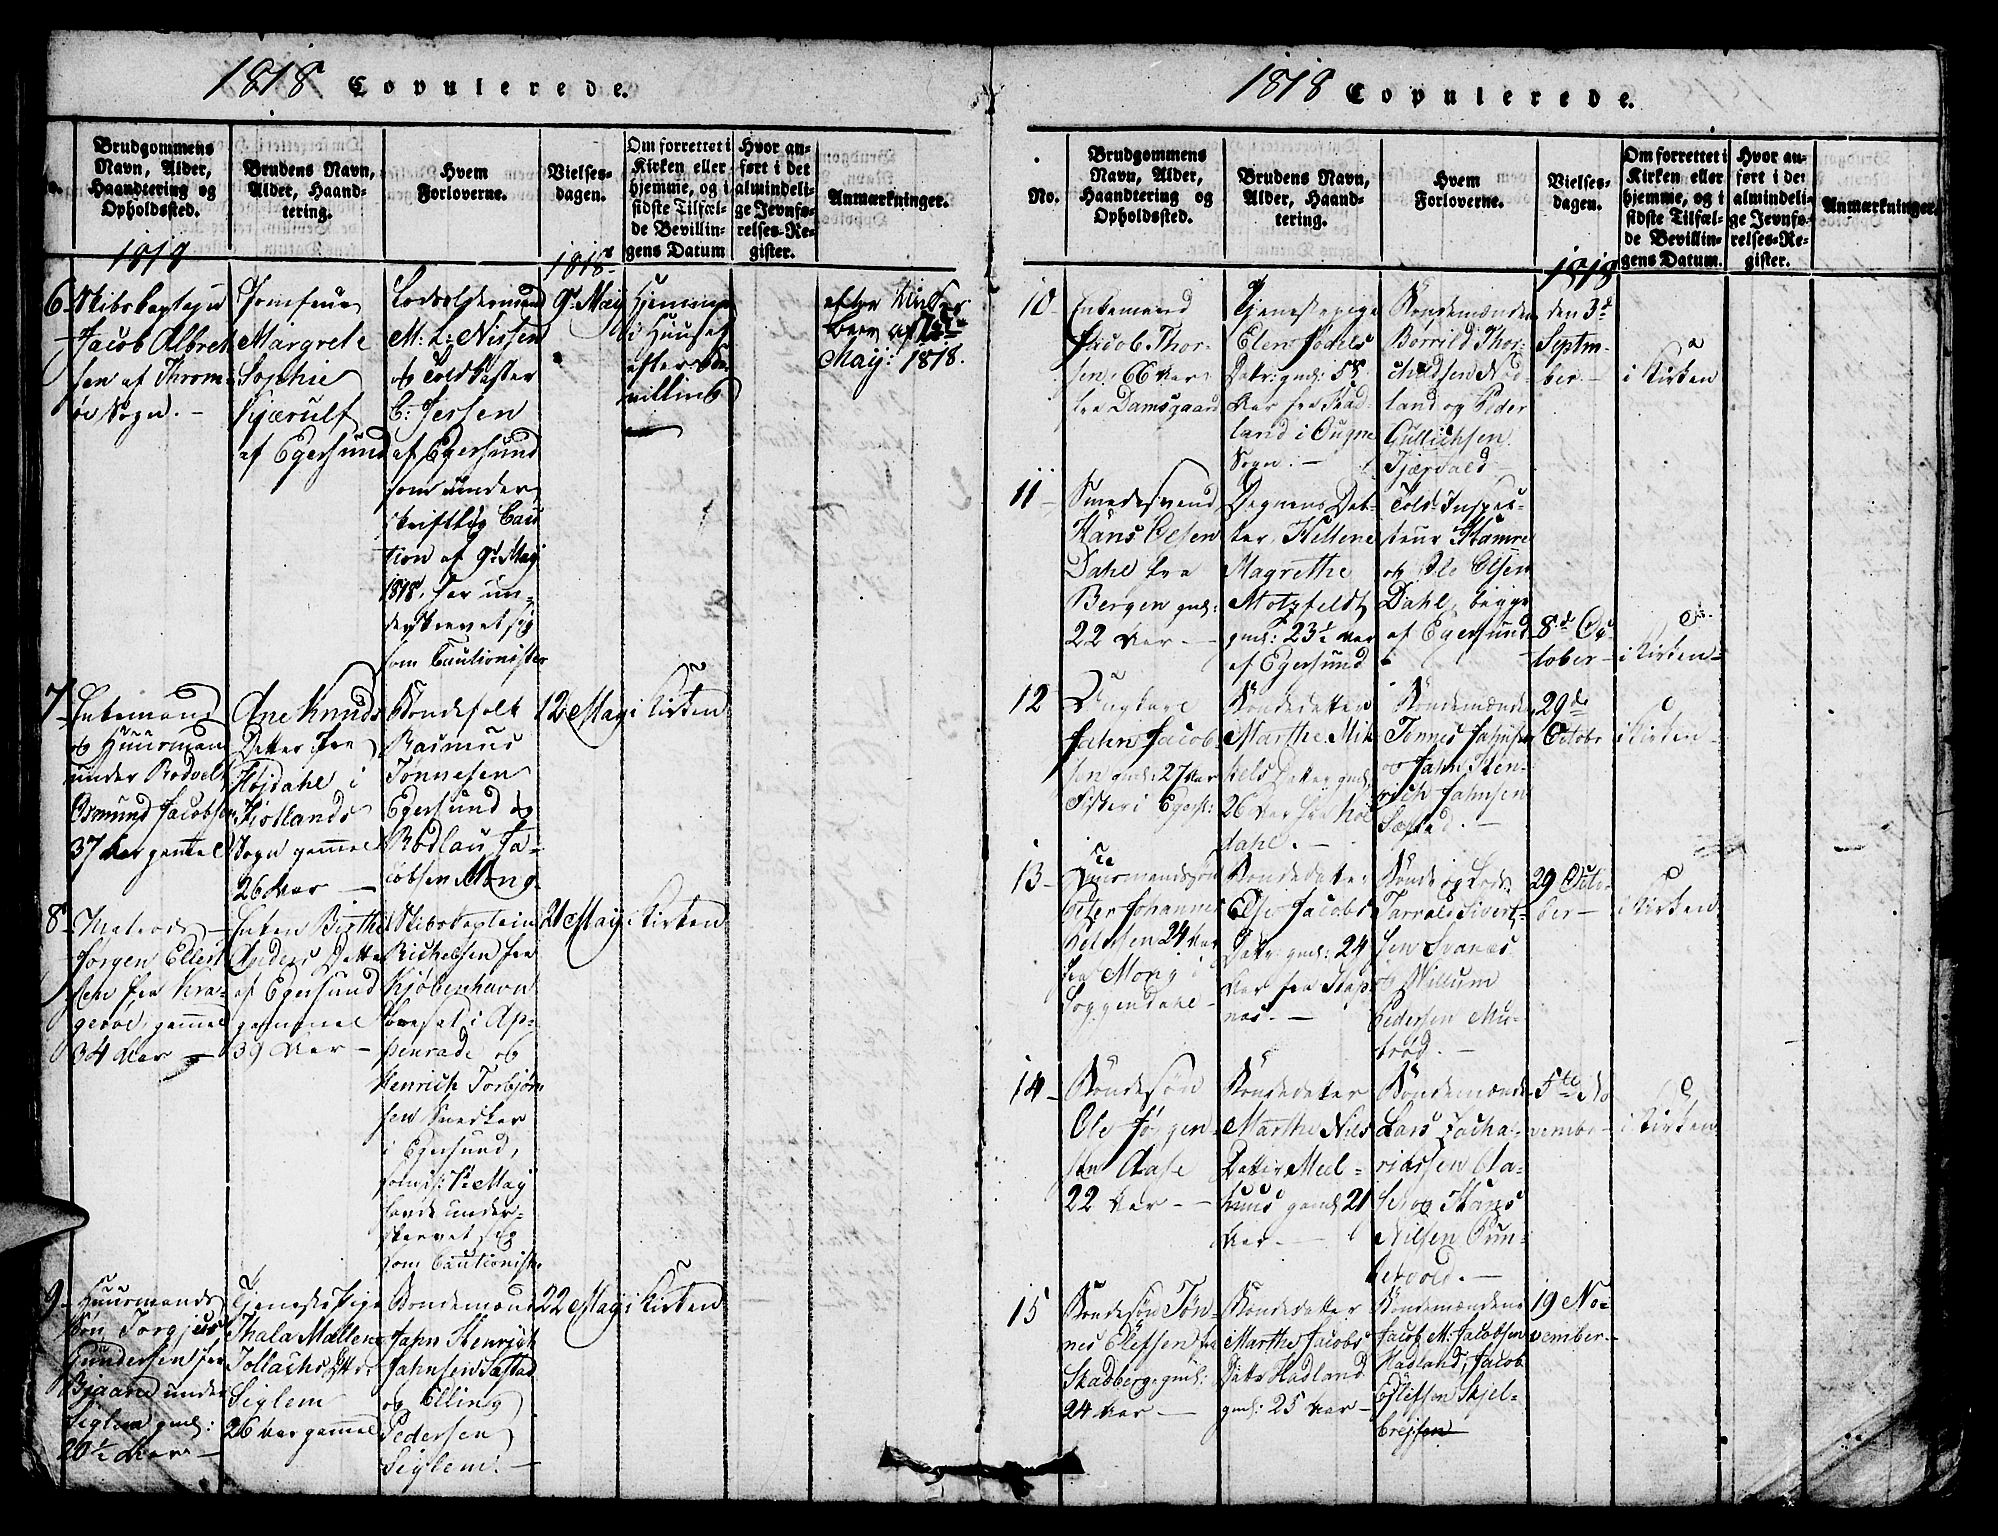 1818 Copulerede.
No.
Brudgommens
Navn, Alder,
Haandtering og
Opholdssted.
Brudens Navn,
Alder, Haand-
tering.
Hvem
Forloverne.
Vielses-
dagen.
Om forrettet i
Kirken eller
hjemme, og i
sidste Tilfæl-
de Bevillin-
gens Datum
Hvor an-
ført i det
almindeli-
ge Jevnfø-
relses-Re-
gister.
Anmærkninger.
1818
6-
Skibskaptejn
Jacob Albret
sen af Throm-
øe Sogn. -
Jomfrue
Margrete
Sophie
af Egersund
M: L: Nissen
og Toldkasser
C: Jessen
af Egersund
som under
skriftlig Cau
tion af 9d May
1818, har un-
derskrevet sig
som Cautionister
1818
9d May
Hjemme
i Huuset
efter Be
villing
efter
May: 1818.
7-
Enkemand
og Huusmand
under Rodvelt
Osmund Jacobsen
37 Aar gammel
Ane Knuds
Datter fra
Højdahl i
Sogn gammel
26 Aar -
Bondefolk
Rasmus
Tønnesen
Egersund og
Rodlau Ja-
cobsen Mong.
12 May
i Kirken
8-
Matros -
Jørgen Ellert
sen fra Kra-
gerøe, gammel
34 Aar -
Enken Birthe
Anders Datter
af Egersund
gammel
39 Aar -
Skibskaptein
Richelsen fra
Kjøbenhavn
i Ap-
penrade og
Henrich Torbjørn
sen Snedker
i Egersund,
May
havde under-
skrevet sig
som Cautionister
21 May
i Kirken
9-
Huusmands
Søn Torgjus
Gundersen fra
Bjaaren under
Siglem gml:
20½ Aar -
Tjenestepige
Thala Mallene
Tollachs Dtr
Siglem
26 Aar gammel
Bondemænd
Jahn Henrich
Jahnsen Sæstad
og Elling
Pedersen
Siglem. -
22 May
i Kirken
1818 Copulerede.
No.
Brudgommens
Navn, Alder,
Haandtering og
Opholdssted.
Brudens Navn,
Alder, Haand-
tering.
Hvem
Forloverne.
Vielses-
dagen.
Om forrettet i
Kirken eller
hjemme, og i
sidste Tilfæl-
de Bevillin-
gens Datum.
Hvor an-
ført i det
almindeli-
ge Jevnfø-
relses-Re-
gister.
Anmærkninger.
1818
10-
Enkemand
Jacob Thor-
sen, 66 Aar
fra Damsgaard
Tjenestepige
Elen
Datr: gml: 58
Aar fra Skad-
land i Ougne
Sogn. -
Bondemændene
Borrild Thor-
childsen Nod-
land og Peder
Gullichsen
den 3d
Septem-
ber. -
i Kirken
11-
Smedesvend
Hans Olsen
Dahl fra
Bergen gml:
22 Aar -
Degnens Dat-
ter Hellene
Magrethe
Motzfeldt
gml: 23½ Aar
af Egersund
Told-Inspec-
teur Stamre
og Ole Olsen
Dahl, begge
af Egersund
8d Oc-
tober -
i Kirken -
12
Ungkarl
Jahn Jacob-
sen gml: 27 Aar
Bondedatter
Marthe Mik
kels Datter gml
26 Aar fra Høi
dahl. -
Bondemænden
Tønnes Jahnsen
og Jahn Hen-
rich Jahnsen
Sæstad. -
29de
October
i Kirken -
13-
Huusmandssøn
Peter Johannes
Petersen 24 Aar
fra Mong i
Soggendahl -
Bondedatter
Else Jacobs
Datr: gml: 24
Aar fra Stap-
nes. -
Tarrald Sivert-
sen Svanæs
og Willum
Pedersen Mu-
brød. -
29 Octo-
ber -
i Kirken
14-
Bondesøn
Ole Jørgen-
sen Aase
22 Aar -
Bondedatter
Marthe Nils
Datter Meel-
huus gaml 21
Aar -
Bondemænde
Lars Zacha-
riassen Aa-
se og Hans
Nilsen Pun-
tervold. -
5te No
vember -
i Kirken
15
Bondesøn Tøn-
nes Elefsen fra
Skadberg gml:
24 Aar -
Bondedatter
Marthe Jacobs
Datr Hadland
gml: 25 Aar -
Bondemændene
Jacob M: Jacobsen
Hadland, Jacob
Skjel-
brejsen
19 No-
vember -